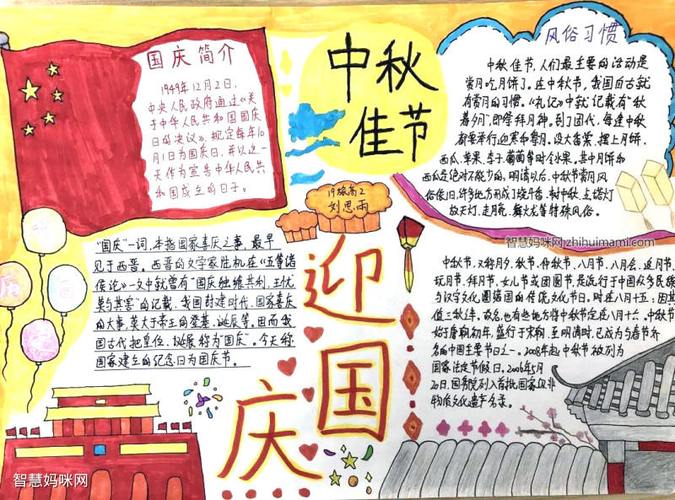 国庆简介
1949年12月2日,
中央人民政府通过《关
于中华人民共和国国庆
日的决议》,规定每年10
月1日为国庆日,并以这一
天作为宣告中华人民共
和国成立的日子。
中秋
佳节
风俗习惯
中秋佳节,人们最主要的活动是
赏月吃月饼了。在中秋节,我国自古就
有赏月的习惯。《礼记》中就记载有“秋
暮夕月”,即祭拜月神。到了周代,每逢中秋
都要举行迎寒和祭月。设大香案,摆上月饼、
西瓜、苹果、李子、葡萄等时令水果,其中月饼和
西瓜是绝对不能少的。明清以后,中秋节赏月风
俗依旧,许多地方形成了烧斗香、树中秋、点塔灯
放天灯、走月亮、舞火龙等特殊风俗。
智慧妈咪网zhihuimami.com
刘思雨
“国庆”一词,本指国家喜庆之事,最早
见于西晋。西晋的文学家陆机在《五等诸
侯论》一文中就曾有“国庆独飨其利,主忧
莫与其害”的记载,我国封建时代,国家喜庆
的大事,莫大于帝王的登基、诞辰等。因而我
国古代把皇位、诞辰称为“国庆”。今天称
国家建立的纪念日为国庆节。
迎
国
庆
中秋节,又称月夕、秋节、仲秋节、八月节、八月会、追月节、
玩月节、拜月节、女儿节或团圆节,是流行于中国众多民族
与汉字文化圈诸国的传统文化节日,时在八月十五;因其
值三秋之半,故名,也有些地方将中秋节定在八月十六。中秋节
始于唐朝初年,盛行于宋朝,至明清时,已成为与春节齐
名的中国主要节日之一。2008年起中秋节被列为
国家法定节假日。2006年5月
20日,国务院列入首批国家级非
物质文化遗产名录。
智慧妈咪网